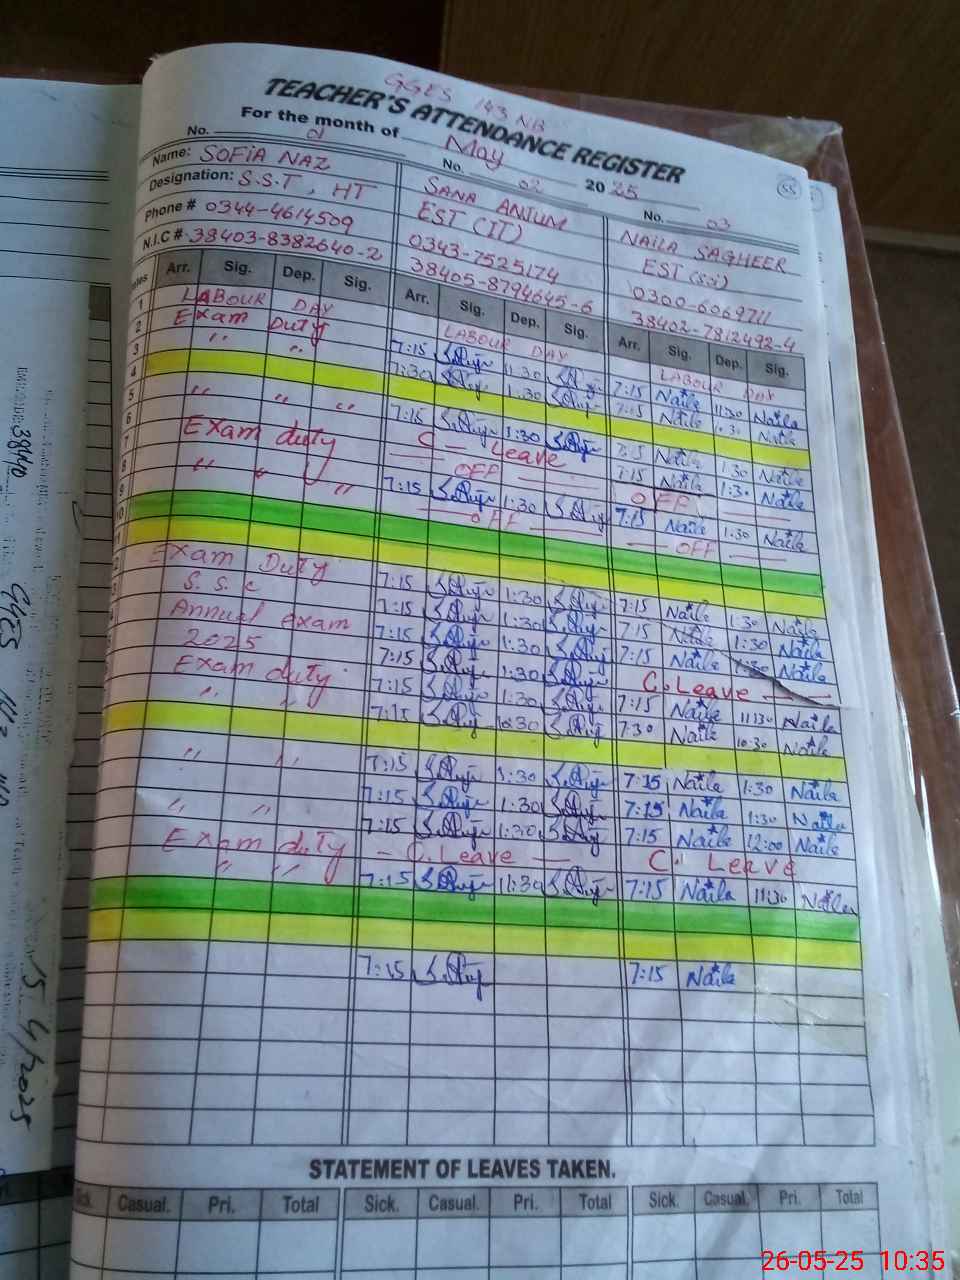 GGES 143 NB
TEACHER'S ATTENDANCE REGISTER
For the month of May 2025
55
No. No. 02 No. 03
Name: SOFIA NAZ SANA ANJUM NAILA SAGHEER
Designation: S.S.T, HT EST (IT) EST (sci)
Phone # 0344-4614509 0343-7525174 0300-6069711
N.I.C # 38403-8382640-2 38405-8794645-6 38402-7812492-4
Arr. Sig. Dep. Sig. Arr. Sig. Dep. Sig. Arr. Sig. Dep. Sig.
1 LABOUR DAY LABOUR DAY LABOUR DAY
2 Exam Duty 7:15 1:30 7:15 Naila 11:30 Naila
3 " " 7:30 1:30 7:15 Naila Naila
4
5 " " " 7:15 1:30 7:15 Naila 1:30 Naila
6 Exam duty C — Leave 7:15 Naila 1:30 Naila
7 OFF OFF
8 " " " 7:15 1:30 7:15 Naila 1:30 Naila
9 OFF OFF
10
11
Exam Duty 7:15 1:30 7:15 Naila 1:30 Naila
S.S.C 7:15 1:30 7:15 Naila 1:30 Naila
Annual exam 7:15 1:30 7:15 Naila 1:30 Naila
2025 7:15 1:30 C. Leave
Exam duty 7:15 1:30 7:15 Naila 11:30 Naila
" 7:15 10:30 7:30 Naila 10:30 Naila
" " 7:15 1:30 7:15 Naila 1:30 Naila
7:15 1:30 7:15 Naila 1:30 Naila
" " 7:15 1:30 7:15 Naila 12:00 Naila
Exam duty – C. Leave — C. Leave
" " 7:15 11:30 7:15 Naila 11:30 Naila
7:15 7:15 Naila
STATEMENT OF LEAVES TAKEN.
Sick. Casual. Pri. Total Sick. Casual. Pri. Total Sick. Casual. Pri. Total
26-05-25 10:35